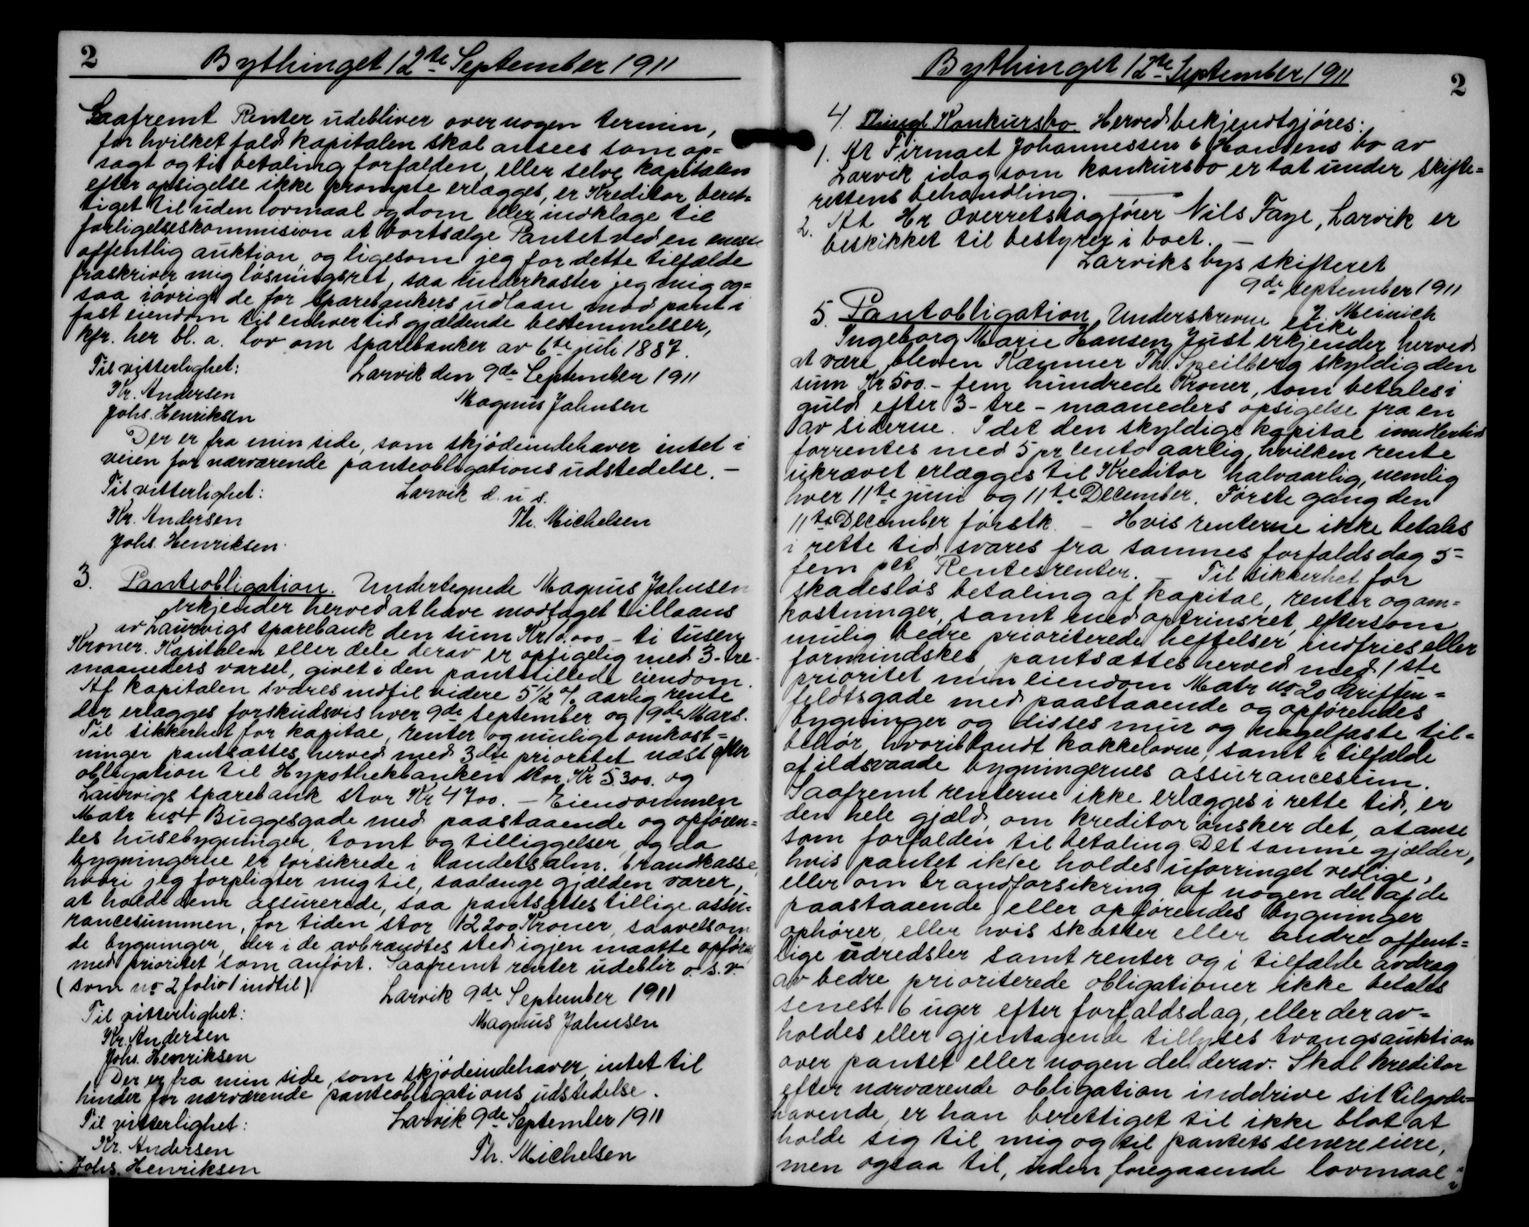 2
Bythinget 12te September 1911
Saafremt Renter udebliver over nogen termin,
for hvilket fald kapitalen skal ansees som op-
sagt og til betaling forfalden, eller selve kapitalen
efter opsigelse ikke prompte erlægges, er Kreditor beret-
tiget til uden lovmaal og dom eller indklage til
forligelseskommission at bortsælge Pantet ved en eneste
offentlig auktion, og ligesom jeg for dette tilfælde
fraskriver mig løsningsret, saa underkaster jeg mig og-
saa iøvrigt de for Sparebankers udlaan mod pant i
fast eiendom til enhver tid gjældende bestemmelser,
kfr. her bl. a. lov om sparebanker av 6te juli 1887.
Til vitterlighet: Larvik den 9de September 1911
Kr. Andersen Magnus Jahnsen
Johs. Henriksen
Der er fra min side, som skjødeindehaver intet i
veien for nærværende panteobligations udstedelse. —
Til vitterlighet: Larvik d. u. s.
Kr. Andersen Th. Michelsen
Johs Henriksen.
3. Panteobligation. Undertegnede Magnus Jahnsen
erkjender herved at have modtaget tillaans
av Laurvigs sparebank den sum Kr 10.000 - ti tusen
Kroner. Kapitalen eller dele derav er opsigelig med 3- tre-
maaneders varsel, givet i den pantstillede eiendom.
Af kapitalen svares indtil videre 5 1/2 % aarlig rente
der erlægges forskudsvis hver 9de September og 9de Mars.
Til sikkerhet for kapital, renter og muligt omkost-
ninger pantsættes herved med 3die prioritet næst efter
obligation til Hypothekbanken stor Kr 5300. og
Laurvigs sparebank stor Kr 4700. — Eiendommen
Matr no 4 Buggesgade med paastaaende og opføren-
des husebygninger, tomt og tilliggelser, og da
bygningerne er forsikrede i Landets alm. brandkasse,
hvori jeg forpligter mig til, saalænge gjælden varer,
at holde dem assurerede, saa pantsættes tillige assu-
rancesummen, for tiden stor 12200 Kroner, saavelsom
de bygninger, der i de avbrændtes sted igjen maatte opføres
med prioritet som anført. Saafremt renter udeblir o. s. v
(som no 2 folio 1 indtil) Larvik 9de September 1911
Til vitterlighet: Magnus Jahnsen
Kr. Andersen
Johs. Henriksen
Der er fra min side, som skjødeindehaver, intet til
hinder for nærværende panteobligations udstedelse.
Til vitterlighet: Larvik 9de September 1911
Kr. Andersen Th. Michelsen
Johs Henriksen
Bythinget 12te September 1911
2
4. Thingl Konkursbo. Herved bekjendtgjøres:
1. At Firmaet Johannessen & Hansens bo av
Larvik idag som konkursbo er tat under skifte-
rettens behandling. —
2. At Hr Overretssagfører Nils Faye, Larvik er
beskikket til bestyrer i boet. —
Larviks bys skifteret
9de september 1911
J. Meinich
5. Pantobligation, Underskrevne enke
Ingeborg Marie Hansen Just erkjender herved
at være bleven Kæmner Th. Speilberg skyldig den
sum Kr 500. - fem hundrede Kroner, som betales i
guld efter 3 - tre - maaneders opsigelse fra en
av siderne. I det den skyldige kapital imidlertid
forrentes med 5 pr cento aarlig, hvilken rente
ukrævet erlægges til Kreditor halvaarlig, nemlig
hver 11te juni og 11te December. Første gang den
11te December førstk. — Hvis renterne ikke betales
i rette tid, svares fra sammes forfaldsdag 5-
fem pct Rentesrenter. — Til sikkerhet for
skadesløs betaling af kapital, renter og om-
kostninger, samt med optrinsret, eftersom
mulig bedre prioriterede heftelser indfries eller
formindskes, pantsættes herved med 1ste
prioritet min eiendom Matr no 20 Griffen-
feldtsgade med paastaaende og opførendes
bygninger og disses mur og nagelfaste til-
behør, hvoriblandt kakkelovne, samt i tilfælde
af ildsvaade bygningernes assurancesum.
Saafremt renterne ikke erlægges i rette tid, er
den hele gjæld, om kreditor ønsker det, at anse
som forfalden til betaling. Det samme gjælder,
hvis pantet ikke holdes uforringet vedlige,
eller om brandforsikring af nogen del af de
paastaaende eller opførendes bygninger
ophører, eller hvis skatter eller andre offent-
lige udredsler samt renter og i tilfælde avdrag
av bedre prioriterede obligationer ikke betales
senest 6 uger efter forfaldsdag, eller der av-
holdes eller gjentagende tillyses tvangsauktion
over pantet eller nogen del derav. Skal kreditor
efter nærværende obligation inddrive sit tilgode-
havende, er han berettiget til ikke blot at
holde sig til mig og til pantets senere eiere,
men ogsaa til, uden foregaaende lovmaal